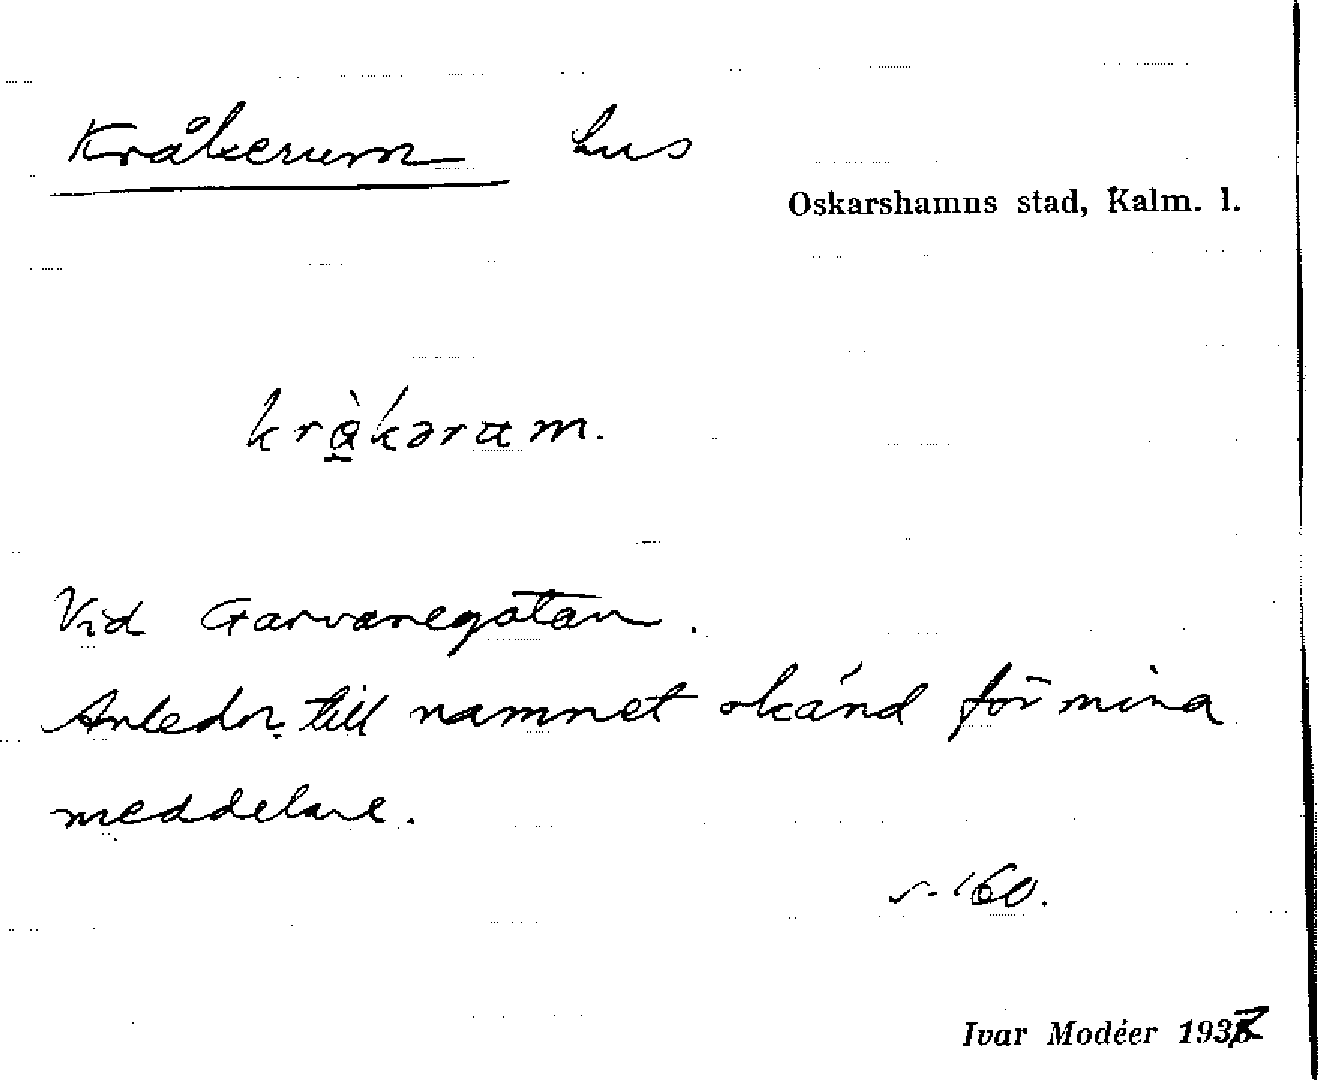 Kråkerum hus
Oskarshamns stad, Kalm. l.
krå̀kəram.
Vid Garvaregatan.
Anledn. till namnet okänd för mina
meddelare.
s. 160.
Ivar Modéer 1937